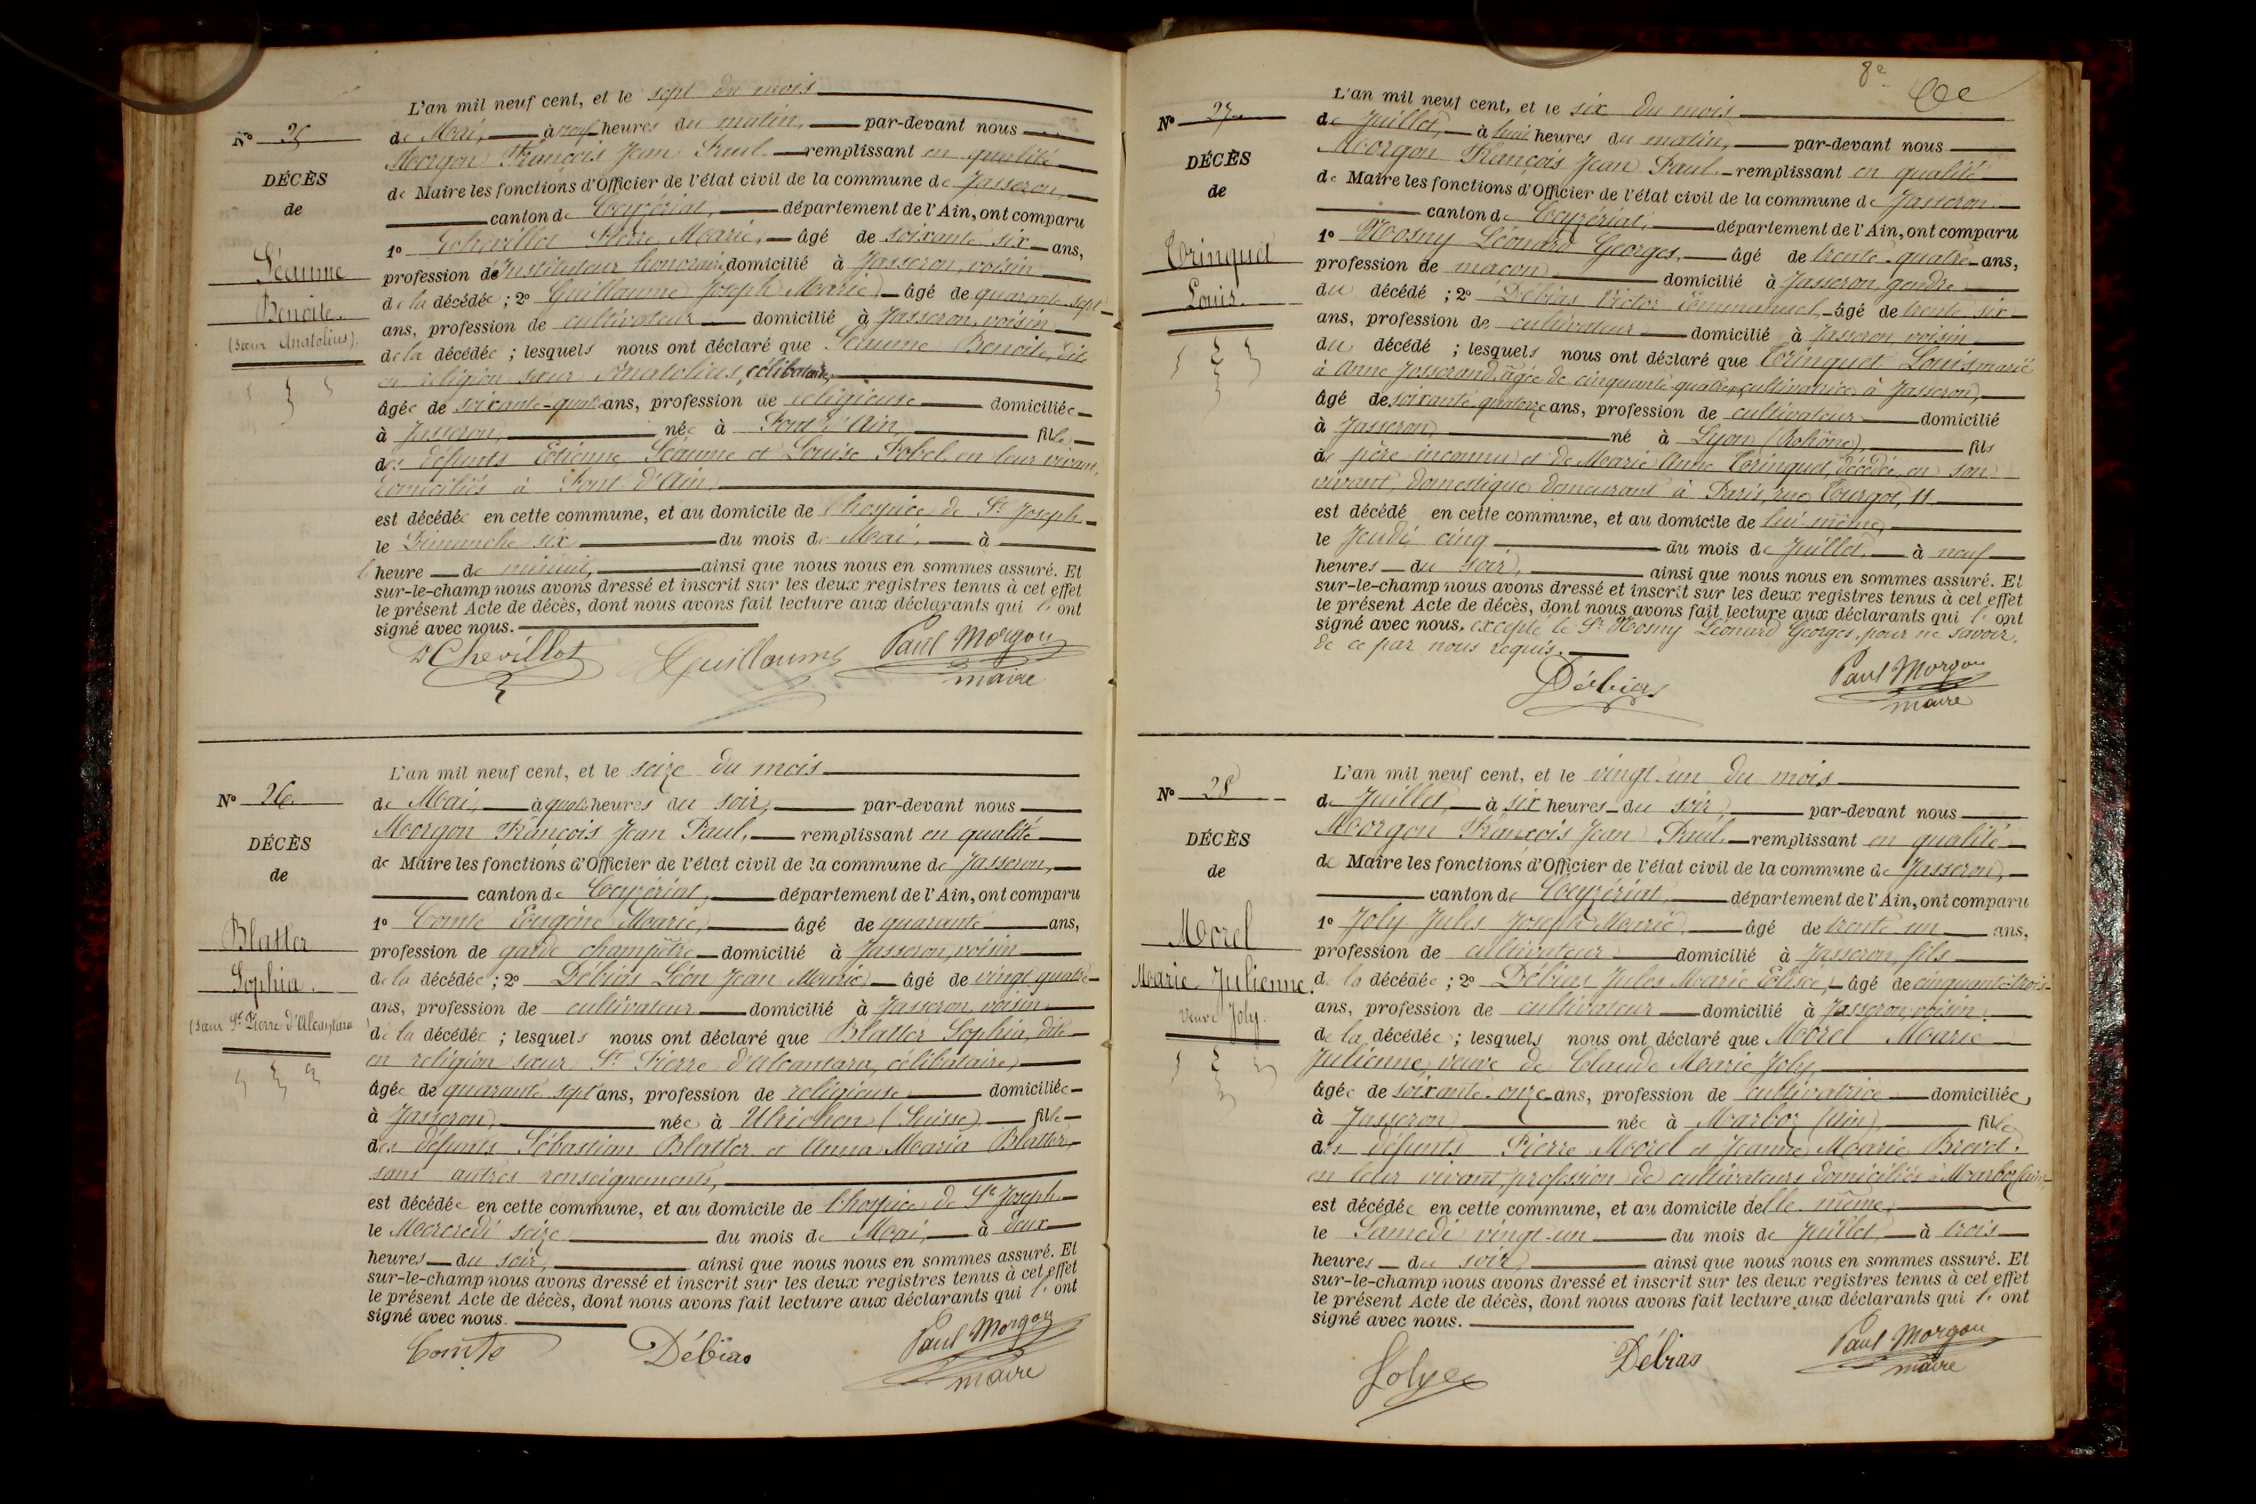 L'an mil neuf cent, et le sept du mois
N° 25
de Mai, à neuf heures du matin, par-devant nous
Morgon François Jean Paul remplissant en qualité
DÉCÈS
de Maire les fonctions d'Officier de l'état civil de la commune de Jasseron,
de
canton de Ceyzériat, département de l'Ain, ont comparu
1° Echevillot Pierre Marie, âgé de soixante six ans,
Séaume
profession de Instituteur honoraire domicilié à Jasseron, voisin
Benoite.
de la décédée ; 2° Guillaume Joseph Marie, âgé de quarante sept
(sœur Anatolius).
ans, profession de cultivateur domicilié à Jasseron, voisin
de la décédée ; lesquels nous ont déclaré que Séaume Benoite, dite
en religion sœur Anatolius, célibataire,
âgée de soixante-quatre ans, profession de religieuse domiciliée
à Jasseron, née à Pont d'Ain, fille
des défunts Etienne Séaume et Louise Fobel, en leur vivant,
domiciliés à Pont d'Ain.
est décédée en cette commune, et au domicile de l'hospice de St Joseph
le Dimanche six du mois de Mai, à
l'heure de minuit, ainsi que nous nous en sommes assuré. Et
sur-le-champ nous avons dressé et inscrit sur les deux registres tenus à cet effet
le présent Acte de décès, dont nous avons fait lecture aux déclarants qui l'ont
signé avec nous.
Chevillot Guillaume Paul Morgon
maire
L'an mil neuf cent, et le seize du mois
N° 26.
de Mai, à quatre heures du soir, par-devant nous
Morgon François Jean Paul, remplissant en qualité
DÉCÈS
de Maire les fonctions d'Officier de l'état civil de la commune de Jasseron,
de
canton de Ceyzériat, département de l'Ain, ont comparu
1° Comte Eugène Marie, âgé de quarante ans,
Blatter
profession de garde champêtre domicilié à Jasseron, voisin
Sophia.
de la décédée ; 2° Débias Léon Jean Marie, âgé de vingt quatre
(sœur St Pierre d'Alcantara)
ans, profession de cultivateur domicilié à Jasseron, voisin
de la décédée ; lesquels nous ont déclaré que Blatter Sophia, dite
en religion sœur St Pierre d'Alcantara, célibataire,
âgée de quarante sept ans, profession de religieuse domiciliée
à Jasseron, née à Ulrichen (Suisse) fille
des défunts Sébastian Blatter et Anna Maria Blatter,
sans autres renseignements,
est décédée en cette commune, et au domicile de l'hospice de St Joseph
le Mercredi seize du mois de Mai, à deux
heures du soir, ainsi que nous nous en sommes assuré. Et
sur-le-champ nous avons dressé et inscrit sur les deux registres tenus à cet effet
le présent Acte de décès, dont nous avons fait lecture aux déclarants qui l'ont
signé avec nous.
Comte Débias Paul Morgon
maire
8e
L'an mil neuf cent, et le six du mois
N° 27
de Juillet, à huit heures du matin, par-devant nous
Morgon François Jean Paul, remplissant en qualité
DÉCÈS
de Maire les fonctions d'Officier de l'état civil de la commune de Jasseron
de
canton de Ceyzériat, département de l'Ain, ont comparu
1° Mosny Léonard Georges, âgé de trente-quatre ans,
Trinquet
profession de maçon domicilié à Jasseron, gendre
Louis.
du décédé ; 2° Débias Victor Emmanuel, âgé de trente six
ans, profession de cultivateur domicilié à Jasseron, voisin
du décédé ; lesquels nous ont déclaré que Trinquet Louis marié
à Anne Josserand, âgée de cinquante-quatre, cultivatrice à Jasseron,
âgé de soixante quatorze ans, profession de cultivateur domicilié
à Jasseron né à Lyon (Rohône), fils
de père inconnu et de Marie Anne Trinquet, décédée, en son
vivant, domestique demeurant à Paris, rue Turgot, 11
est décédé en cette commune, et au domicile de lui-même,
le Jeudi cinq du mois de Juillet, à neuf
heures du soir, ainsi que nous nous en sommes assuré. Et
sur-le-champ nous avons dressé et inscrit sur les deux registres tenus à cet effet
le présent Acte de décès, dont nous avons fait lecture aux déclarants qui l'ont
signé avec nous, excepté le Sr Mosny Léonard Georges, pour ne savoir,
de ce par nous requis.
Débias Paul Morgon
maire
L'an mil neuf cent, et le vingt-un du mois
N° 28
de Juillet, à six heures du soir, par-devant nous
Morgon François Jean Paul, remplissant en qualité
DÉCÈS
de Maire les fonctions d'Officier de l'état civil de la commune de Jasseron,
de
canton de Ceyzériat, département de l'Ain, ont comparu
1° Joly Jules Joseph Marie, âgé de trente-un ans,
Morel
profession de cultivateur domicilié à Jasseron, fils
Marie Julienne.
de la décédée ; 2° Débias Jules Marie Elisée, âgé de cinquante-trois
Veuve Joly.
ans, profession de cultivateur domicilié à Jasseron, voisin,
de la décédée ; lesquels nous ont déclaré que Morel Marie
Julienne, veuve de Claude Marie Joly,
âgée de soixante-onze ans, profession de cultivatrice domiciliée,
à Jasseron née à Marboz (Ain), fille
des défunts Pierre Morel et Jeanne Marie Brevet,
en leur vivant, profession de cultivateurs domiciliés à Marboz (Ain),
est décédée en cette commune, et au domicile delle même,
le Samedi vingt-un du mois de Juillet, à trois
heures du soir, ainsi que nous nous en sommes assuré. Et
sur-le-champ nous avons dressé et inscrit sur les deux registres tenus à cet effet
le présent Acte de décès, dont nous avons fait lecture aux déclarants qui l'ont
signé avec nous.
Joly Débias Paul Morgon
maire